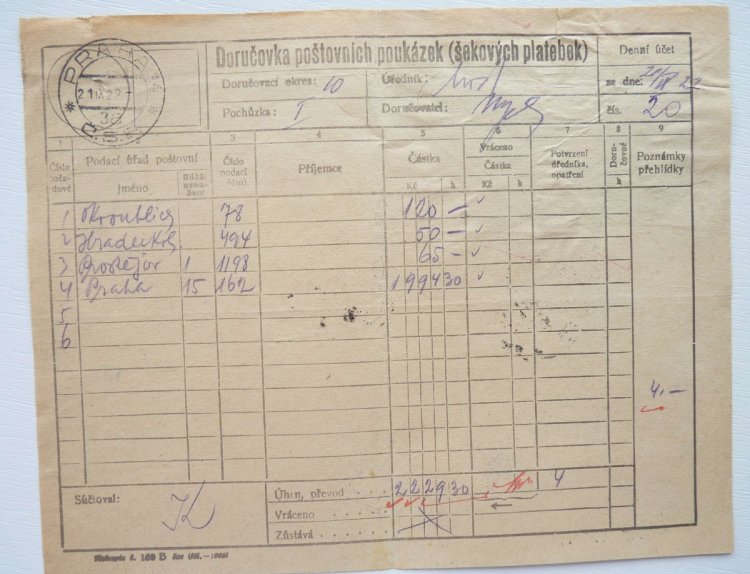 PRAHA
Doručovka poštovních poukázek (šekových platebek)
Denní účet
Doručovací okres: 10
Úředník:
ze dne:
Pochůzka: I
Doručovatel:
čís. 20
1 2 3 4 5 6 7 8 9
Číslo řadové
Podací úřad poštovní
Jméno
Číslo podací
Příjemce
Částka
Kč h
Vráceno
Částka
Kč h
Potvrzení úředníka, opatření
Doručovné
h
Poznámky přehlídky
1 78 120 —
2 Hradec Kr. 494 50 —
3 Prostějov 1 1198 65 —
4 Praha 15 162 1994 30
5
6
4.—
Súčtoval:
Úhrn, převod 2229 30 4
Vráceno
Zůstává